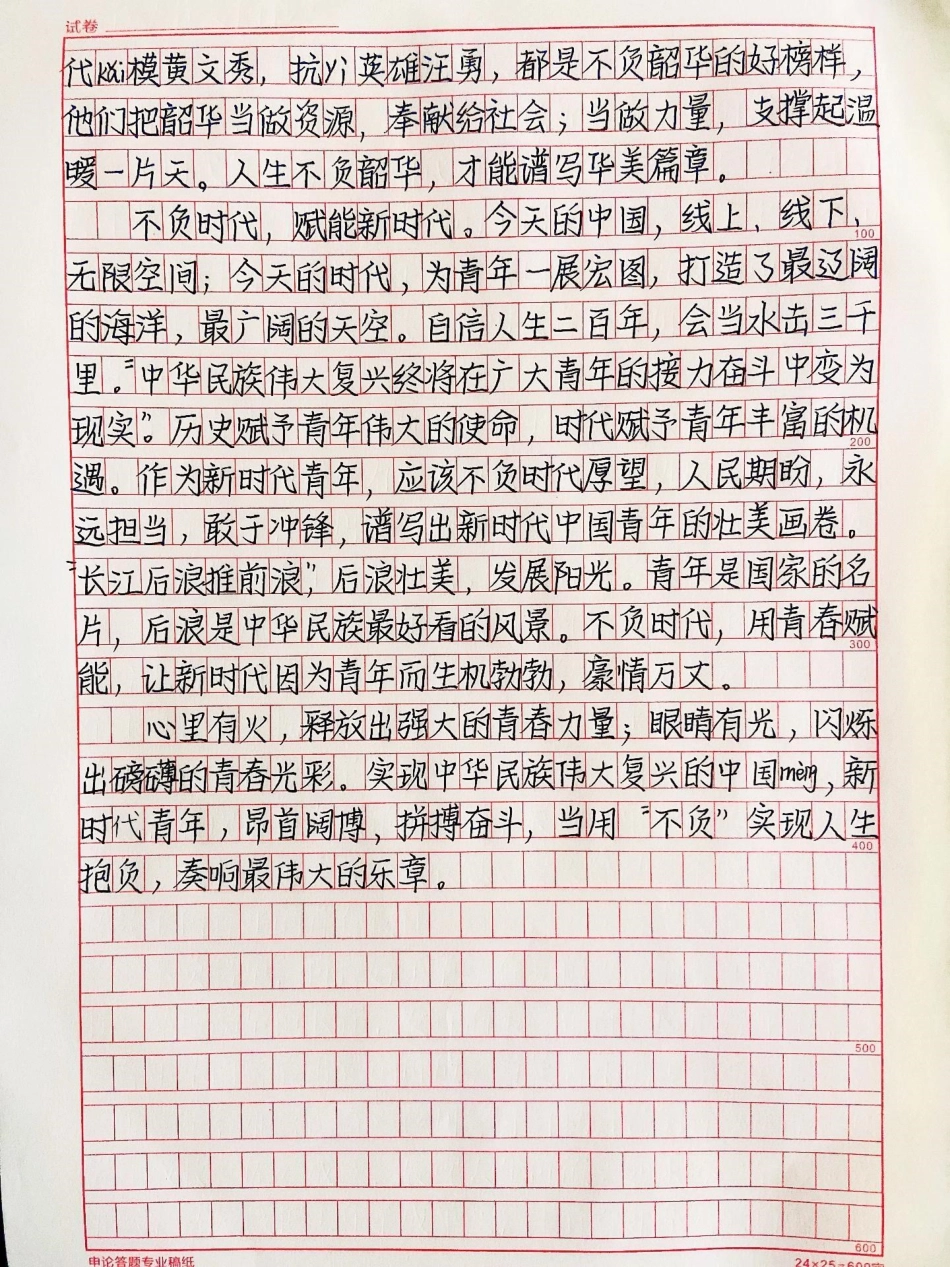 试卷
代kǎi模黄文秀，抗yì英雄汪勇，都是不负韶华的好榜样，
他们把韶华当做资源，奉献给社会；当做力量，支撑起温
暖一片天。人生不负韶华，才能谱写华美篇章。
不负时代，赋能新时代。今天的中国，线上、线下、
100
无限空间；今天的时代，为青年一展宏图，打造了最辽阔
的海洋，最广阔的天空。自信人生二百年，会当水击三千
里。“中华民族伟大复兴终将在广大青年的接力奋斗中变为
现实”。历史赋予青年伟大的使命，时代赋予青年丰富的机
200
遇。作为新时代青年，应该不负时代厚望，人民期盼，永
远担当，敢于冲锋，谱写出新时代中国青年的壮美画卷。
“长江后浪推前浪”，后浪壮美，发展阳光。青年是国家的名
片，后浪是中华民族最好看的风景。不负时代，用青春赋
300
能，让新时代因为青年而生机勃勃，豪情万丈。
心里有火，释放出强大的青春力量；眼睛有光，闪烁
出磅礴的青春光彩。实现中华民族伟大复兴的中国mèng，新
时代青年，昂首阔博，拼搏奋斗，当用“不负”实现人生
400
抱负，奏响最伟大的乐章。
500
600
申论答题专业稿纸
24×25=600字